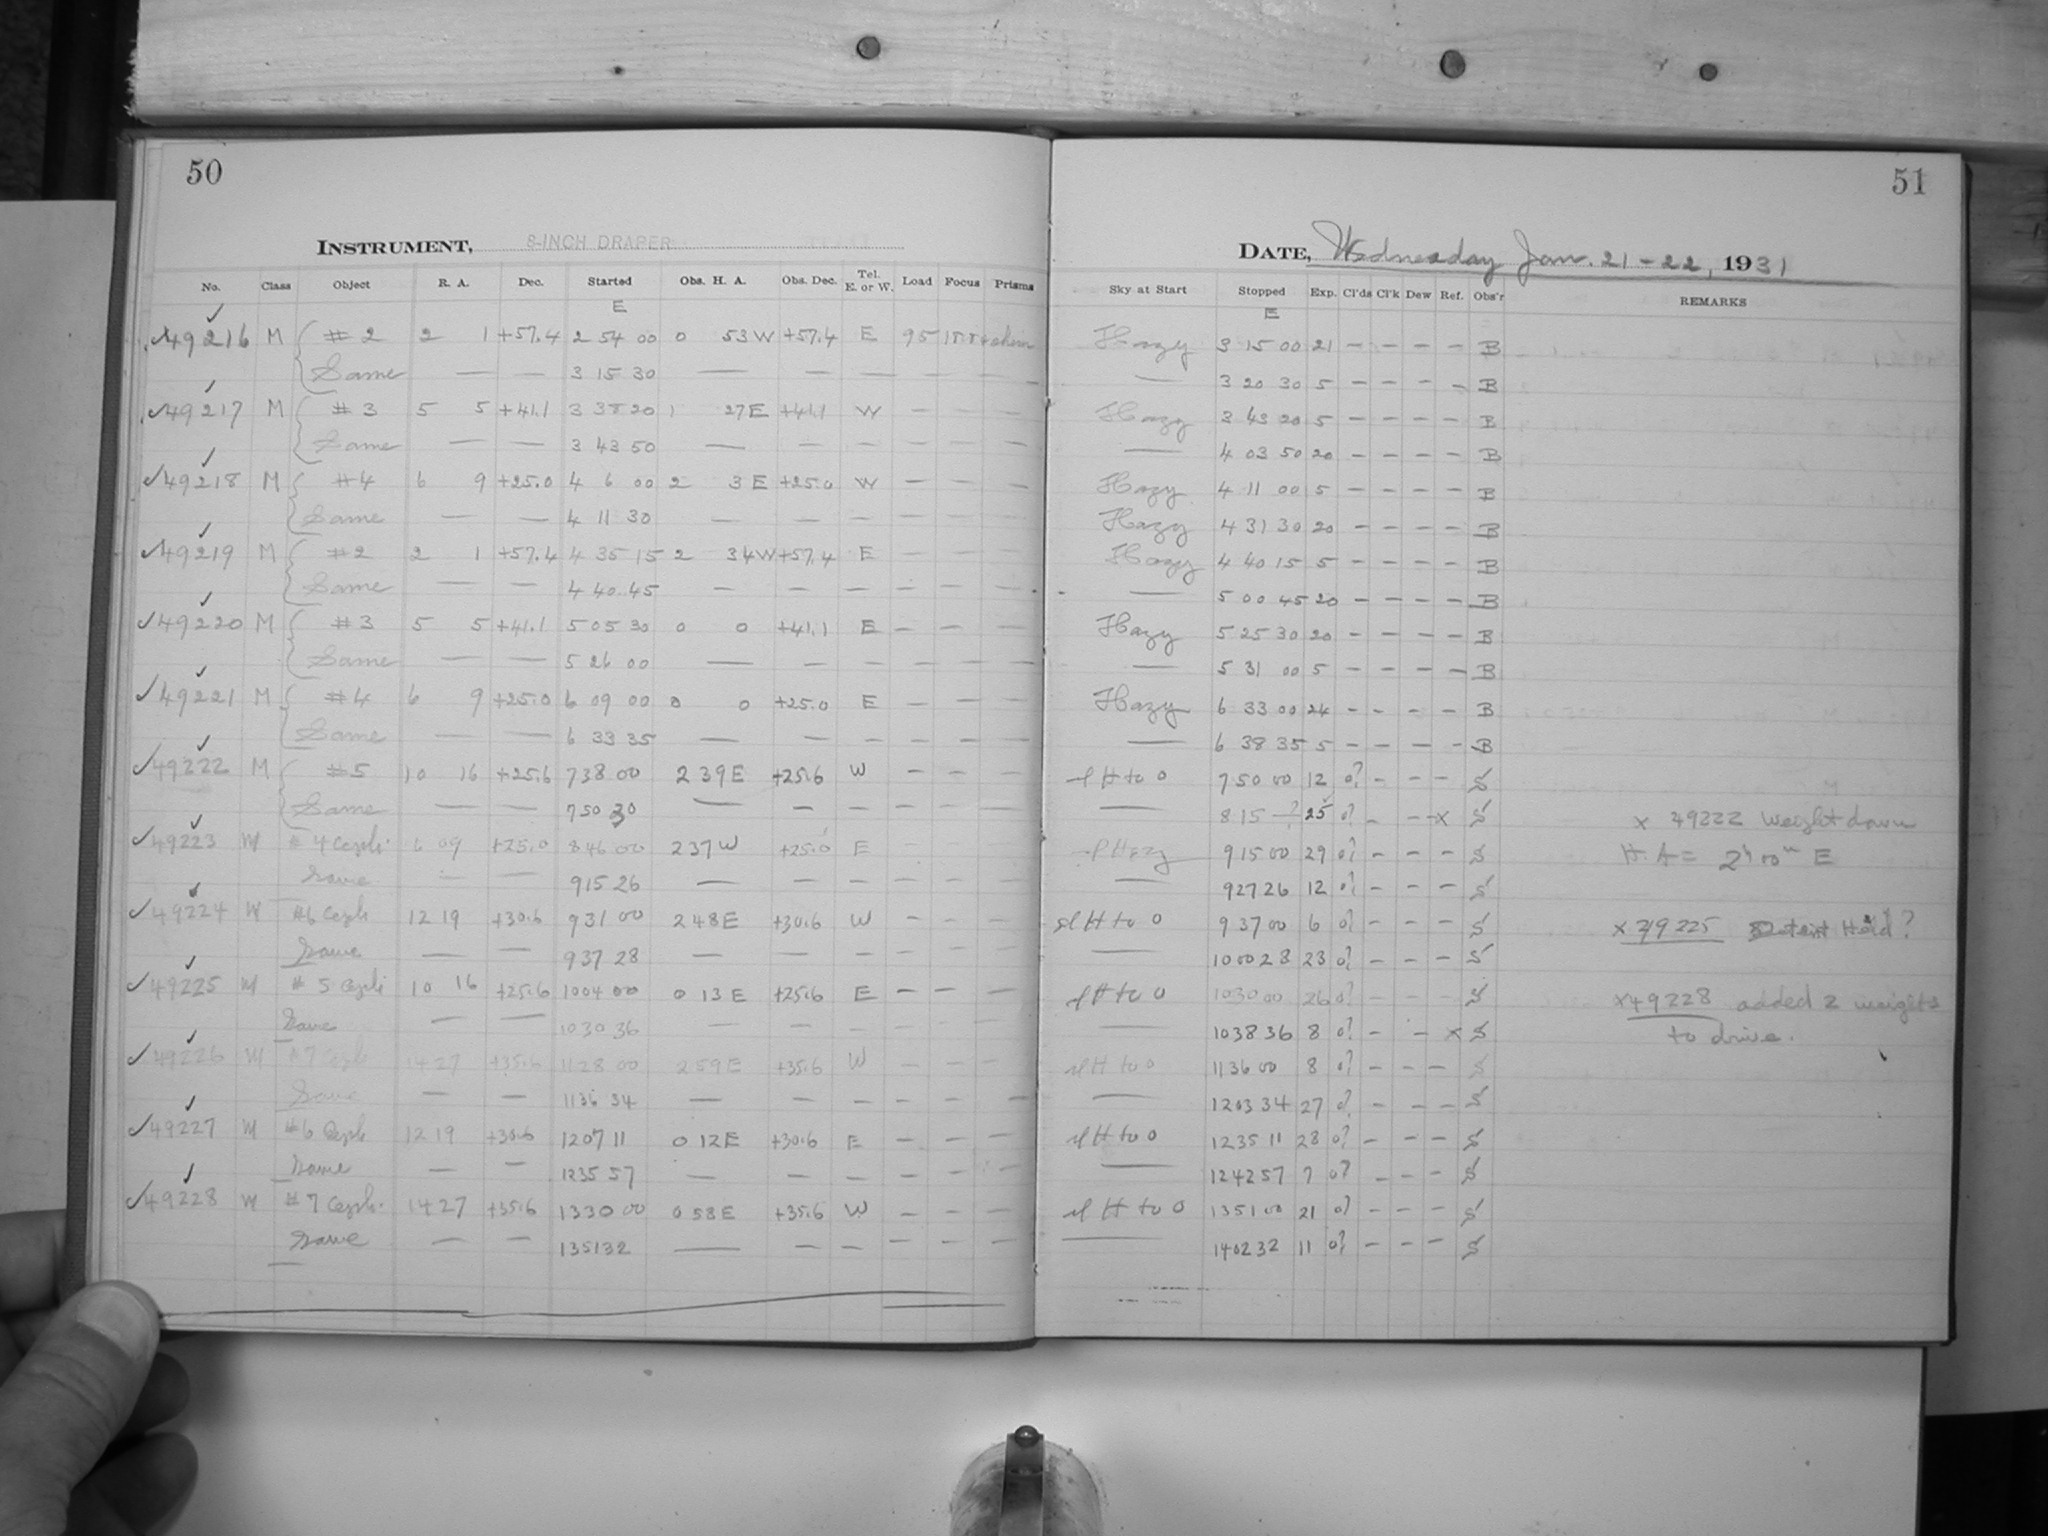 50
INSTRUMENT, 8-INCH DRAPER
No. Class Object R. A. Dec. Started Obs. H. A. Obs. Dec. Tel. E. or W. Load Focus Prisms
E
49216 M # 2 2 1 +57.4 2 54 00 0 53 W +57.4 E 95
Same — — 3 15 30 — — — — — —
49217 M # 3 5 5 +41.1 3 38 20 1 27 E +41.1 W — — —
Same — — 3 43 50 — — — — — —
49218 M #4 6 9 +25.0 4 6 00 2 3 E +25.0 W — — —
Same — — 4 11 30 — — — — — —
49219 M #2 2 1 +57.4 4 35 15 2 34 W +57.4 E — — —
Same — — 4 40 45 — — — — — —
49220 M #3 5 5 +41.1 5 05 30 0 0 +41.1 E — — —
Same — — 5 26 00 — — — — — —
49221 M #4 6 9 +25.0 6 09 00 0 0 +25.0 E — — —
Same — — 6 33 35 — — — — — —
49222 M #5 10 16 +25.6 7 38 00 2 39 E +25.6 W — — —
Same — — 7 50 30 — — — — — —
49223 M # 4 Ceph. 6 09 +25.0 8 46 00 2 37 W +25.0 E —
Same — — 9 15 26 — — — — — —
49224 M #6 Ceph 12 19 +30.6 9 31 00 2 48 E +30.6 W — — —
Same — — 9 37 28 — — — — — —
49225 M # 5 Ceph 10 16 +25.6 10 04 00 0 13 E +25.6 E — — —
Same — — 10 30 36 — — — — — —
49226 M #7 Ceph 14 27 +35.6 11 28 00 2 59 E +35.6 W — — —
Same — — 11 36 34 — — — — — —
49227 M #6 Ceph 12 19 +30.6 12 07 11 0 12 E +30.6 E — — —
Same — — 12 35 57 — — — — — —
49228 M # 7 Ceph. 14 27 +35.6 13 30 00 0 58 E +35.6 W — — —
Same — — 13 51 32 — — — — — —
51
DATE, Wednesday Jan. 21-22, 1931
Sky at Start Stopped Exp. Cl'ds Cl'k Dew Ref. Obs'r REMARKS
E
Hazy 3 15 00 21 — — — — B
— 3 20 30 5 — — — — B
Hazy 3 43 20 5 — — — — B
— 4 03 50 20 — — — — B
Hazy 4 11 00 5 — — — — B
Hazy 4 31 30 20 — — — — B
Hazy 4 40 15 5 — — — — B
— 5 00 45 20 — — — — B
Hazy 5 25 30 20 — — — — B
— 5 31 00 5 — — — — B
Hazy 6 33 00 24 — — — — B
— 6 38 35 5 — — — — B
sl H to 0 7 50 00 12 0? — — — S
— 8 15 —? 25 0? — — x S x 49222 weight down
sl Hazy 9 15 00 29 0? — — — S H.A = 2h 00m E
— 9 27 26 12 0? — — — S
sl H to 0 9 37 00 6 0? — — — S x 49225 Held?
— 10 00 28 23 0? — — — S
sl H to 0 10 30 00 26 0? — — — S x 49228 added 2 weights
— 10 38 36 8 0? — — x S to drive.
sl H to 0 11 36 00 8 0? — — — S
— 12 03 34 27 0? — — — S
sl H to 0 12 35 11 28 0? — — — S
— 12 42 57 7 0? — — — S
sl H to 0 13 51 00 21 0? — — — S
— 14 02 32 11 0? — — — S